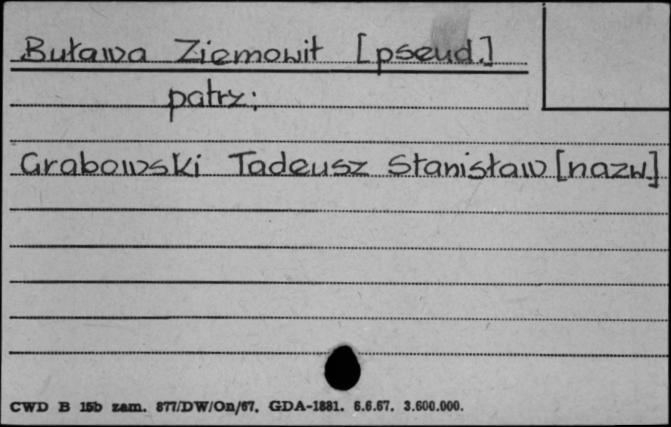 Buława Ziemowit [pseud.]
patrz:
Grabowski Tadeusz Stanisław [nazw.]
CWD B 15b zam. 877/DW/On/67. GDA-1881. 6.6.67. 3.600.000.